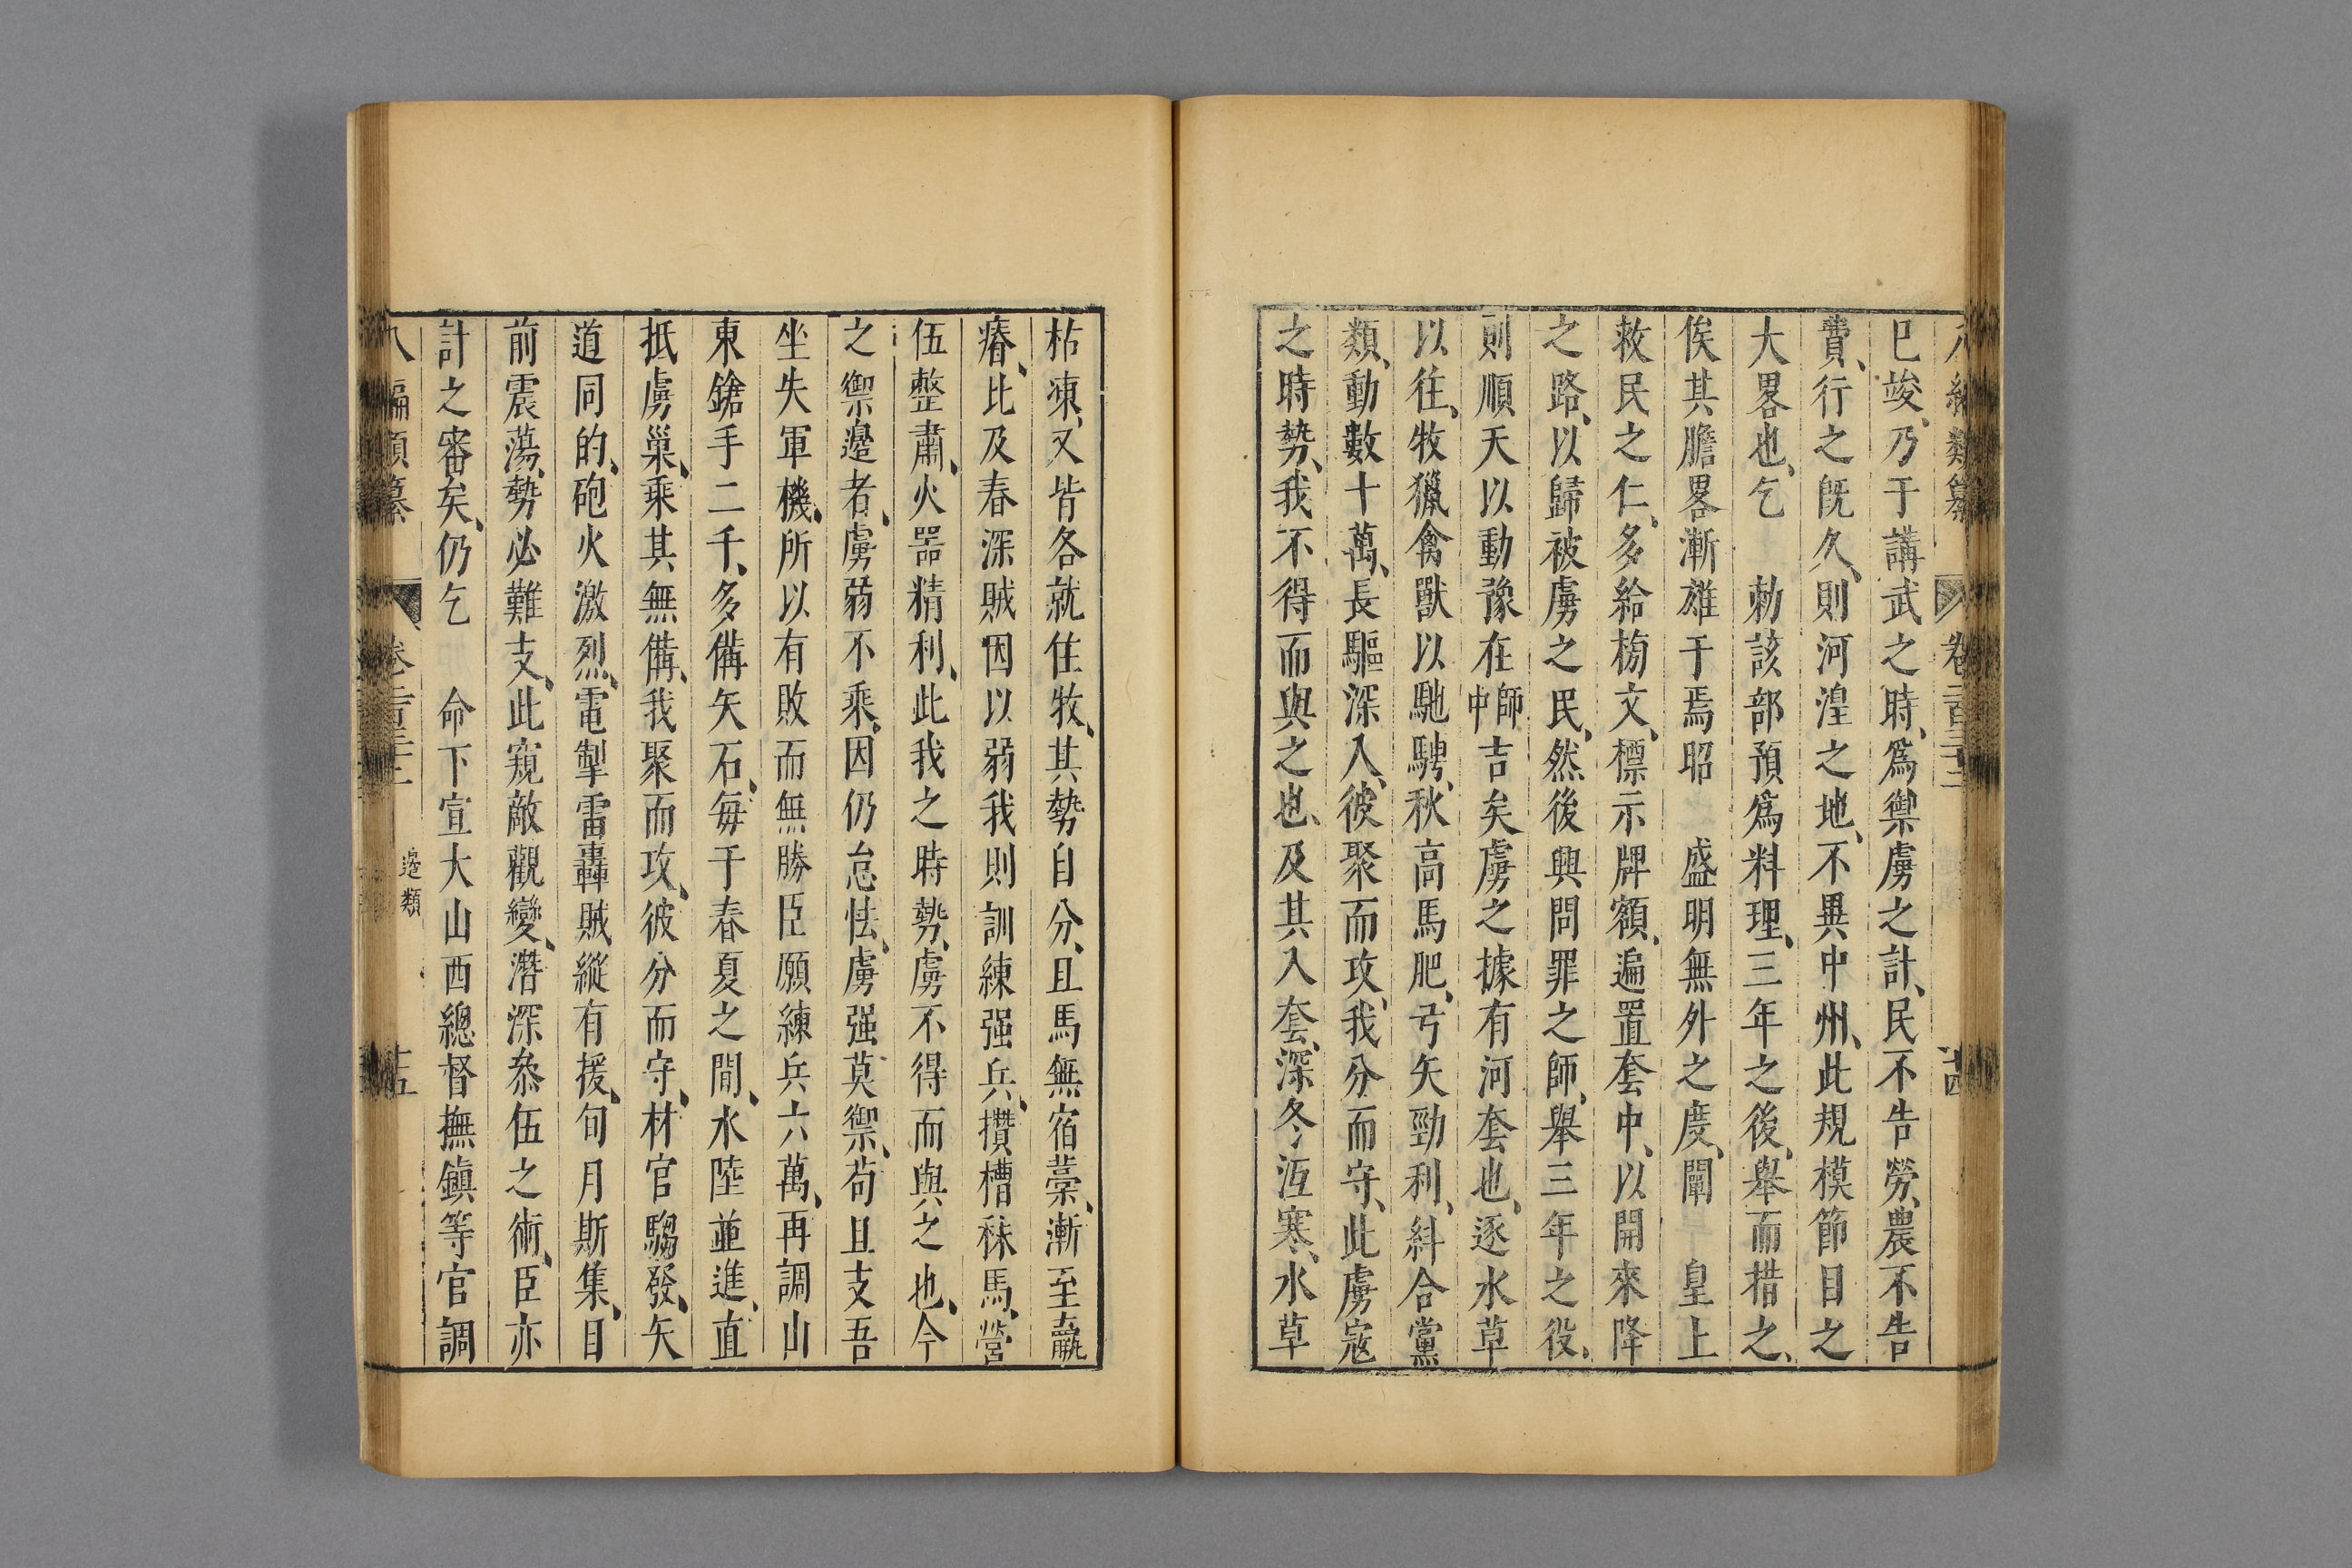 已竣、乃于講武之時、爲禦虜之計、民不告勞、農不告
費、行之旣久、則河湟之地、不異中州、此規模節目之
大畧也、乞　勅該部預爲料理、三年之後、舉而措之、
俟其膽畧漸雄于焉昭　盛明無外之度、闡　皇上
救民之仁、多給榜文、標示牌額、遍置套中、以開來降
之路、以歸被虜之民、然後興問罪之師、舉三年之役、
則順天以動豫在師中吉矣虜之據有河套也、逐水草
以徃、牧獵禽獸以馳騁、秋高馬肥、弓矢勁利、糾合黨
類、動數十萬、長驅深入、彼聚而攻、我分而守、此虜寇
之時勢、我不得而與之也、及其入套、深冬沍寒、水草
枯凍、又皆各就住牧、其勢自分、且馬無宿藁、漸至羸
瘠、比及春深賊因以弱我則訓練强兵、攢槽秣馬、營
伍整肅、火器精利、此我之時勢、虜不得而與之也、今
之禦邊者、虜弱不乘、因仍怠怯、虜强莫禦、苟且支吾
坐失軍機、所以有敗而無勝臣願練兵六萬、再調山
東鎗手二千、多備矢石、每于春夏之間、水陸並進、直
抵虜巢、乘其無備、我聚而攻、彼分而守、材官騶發、矢
道同的、砲火激烈、電掣雷轟賊縱有援、旬月斯集、目
前震蕩、勢必難支、此窺敵觀變、潛深叅伍之術、臣亦
計之審矣、仍乞　命下宣大山西總督撫鎭等官調
八編類纂　卷二百三十二　邊類　十五